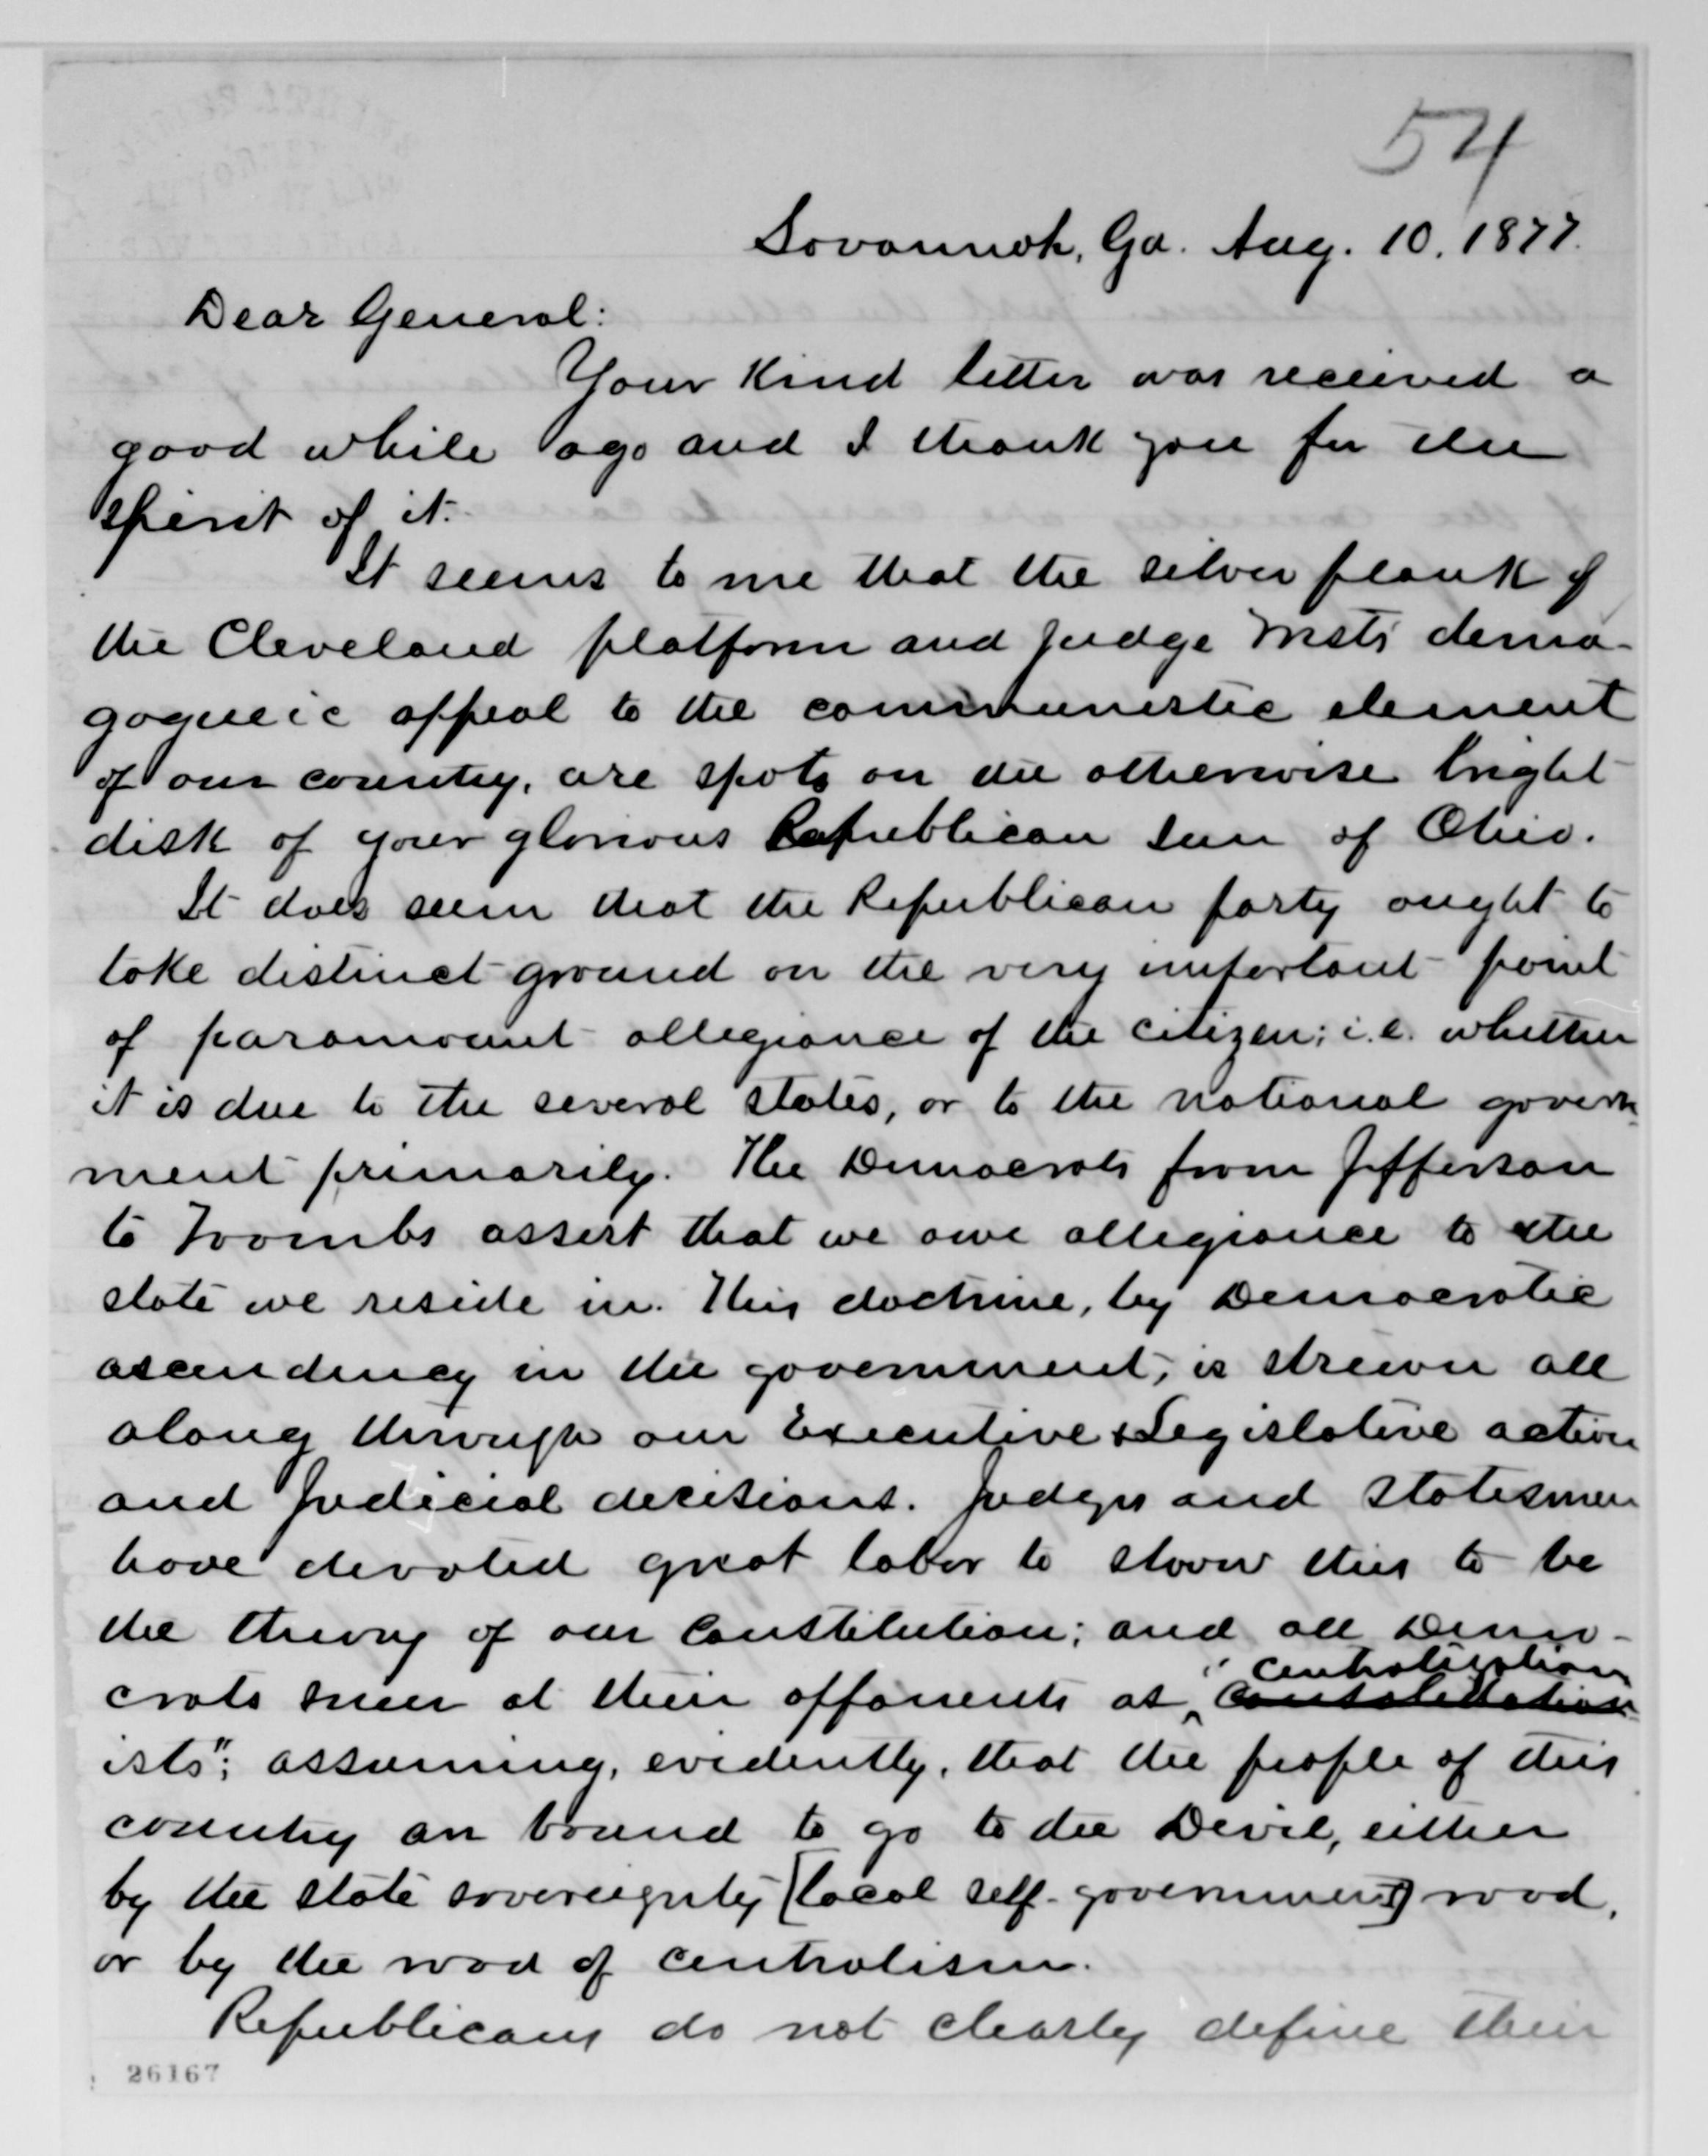 54
Savannah, Ga. Aug. 10. 1877.
Dear General:
Your kind letter was received a
good while ago and I thank you for the
spirit of it.
It seems to me that the silver plank of
the Cleveland platform and Judge Wests dema-
gogueic appeal to the communistic element
of our country, are spots on the otherwise bright
disk of your glorious Republican Sun of Ohio.
It does seem that the Republican party ought to
take distinct ground on the very important point
of paramount allegiance of the citizen; i.e. whether
it is due to the several states, or to the national govern-
ment primarily. The Democrats from Jefferson
to Toombs assert that we owe allegiance to the
state we reside in. This doctrine, by Democratic
ascendency in the government, is strewn all
along through our Executive & Legislative action
and Judicial decisions. Judges and Statesmen
have devoted great labor to show this to be
the theory of our Constitution; and all Demo-
"Centralization
crats sneer at their opponents as
ists"; assuming, evidently, that the people of this
country are bound to go to the Devil, either
by the state sovereignty [local self-government] road,
or by the road of centralism.
Republicans do not clearly define their
26167